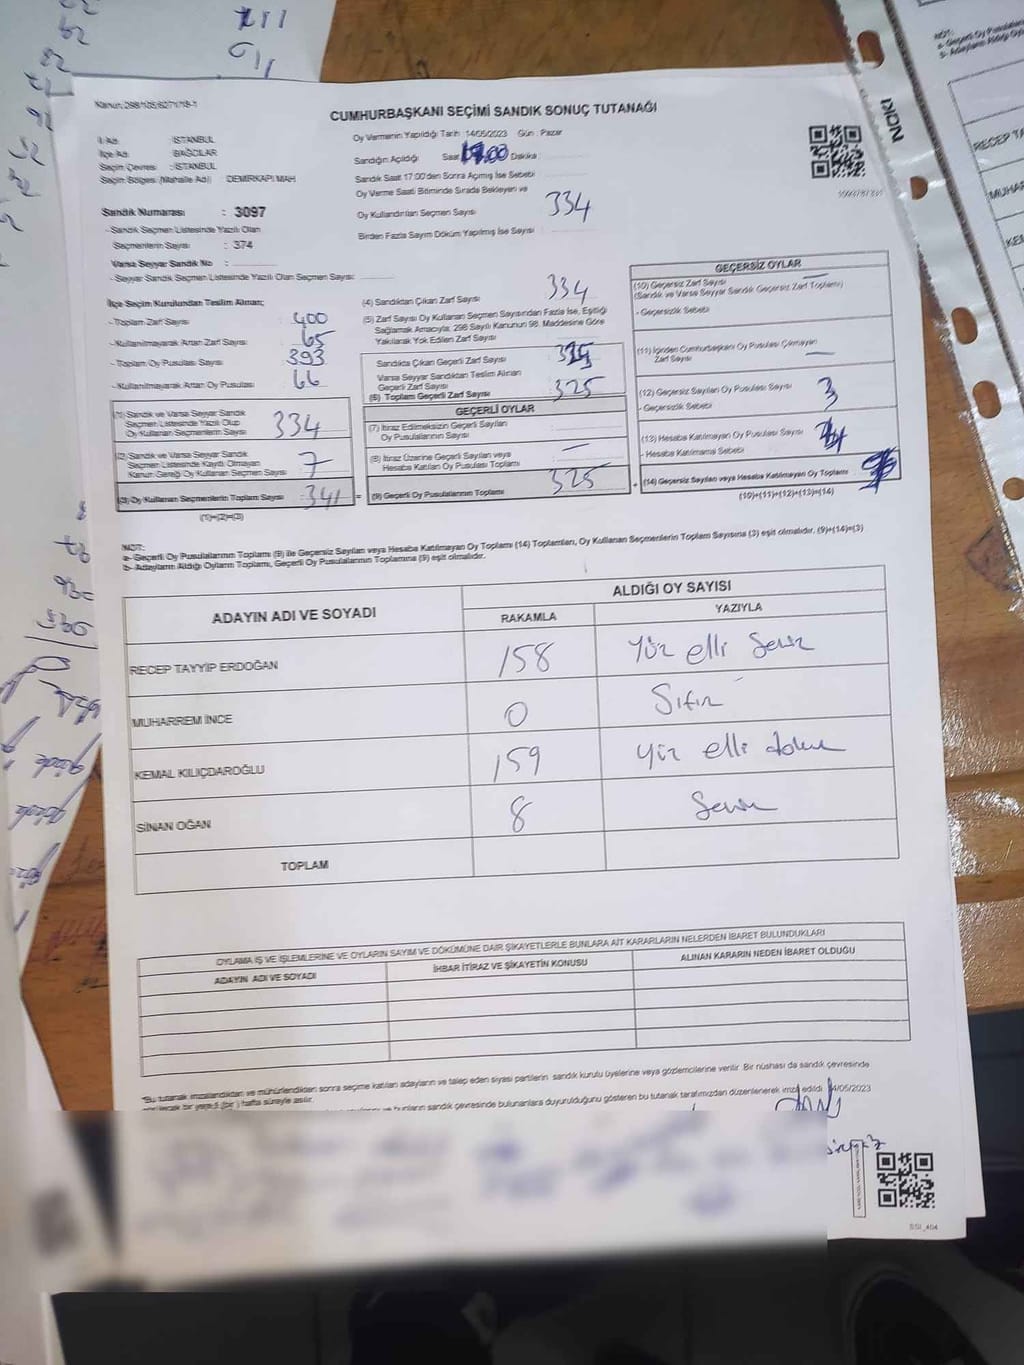 Kanun: 298/105;6271/18-1
CUMHURBAŞKANI SEÇİMİ SANDIK SONUÇ TUTANAĞI
İl Adı : İSTANBUL
İlçe Adı : BAĞCILAR
Seçim Çevresi : İSTANBUL
Seçim Bölgesi (Mahalle Adı) DEMİRKAPI MAH
Sandık Numarası : 3097
- Sandık Seçmen Listesinde Yazılı Olan
Seçmenlerin Sayısı : 374
Varsa Seyyar Sandık No :
- Seyyar Sandık Seçmen Listesinde Yazılı Olan Seçmen Sayısı:
Oy Vermenin Yapıldığı Tarih : 14/05/2023 Gün : Pazar
Sandığın Açıldığı Saat Dakika
Sandık Saat 17:00'den Sonra Açımış İse Sebebi
Oy Verme Saati Bitiminde Sırada Bekleyen ve
Oy Kullandırılan Seçmen Sayısı 334
Birden Fazla Sayım Döküm Yapılmış İse Sayısı
İlçe Seçim Kurulundan Teslim Alınan;
- Toplam Zarf Sayısı : 400
- Kullanılmayarak Artan Zarf Sayısı : 65
- Toplam Oy Pusulası Sayısı : 393
- Kullanılmayarak Artan Oy Pusulası : 66
(1) Sandık ve Varsa Seyyar Sandık
Seçmen Listesinde Yazılı Olup
Oy Kullanan Seçmenlerin Sayısı 334
(2) Sandık ve Varsa Seyyar Sandık
Seçmen Listesinde Kayıtlı Olmayan
Kanun Gereği Oy Kullanan Seçmen Sayısı 7
(3) Oy Kullanan Seçmenlerin Toplam Sayısı 341
(1)+(2)=(3)
(4) Sandıktan Çıkan Zarf Sayısı 334
(5) Zarf Sayısı Oy Kullanan Seçmen Sayısından Fazla İse, Eşitliği
Sağlamak Amacıyla; 298 Sayılı Kanunun 98. Maddesine Göre
Yakılarak Yok Edilen Zarf Sayısı
Sandıkta Çıkan Geçerli Zarf Sayısı
Varsa Seyyar Sandıktan Teslim Alınan
Geçerli Zarf Sayısı
(6) Toplam Geçerli Zarf Sayısı 325
GEÇERLİ OYLAR
(7) İtiraz Edilmeksizin Geçerli Sayılan
Oy Pusulalarının Sayısı
(8) İtiraz Üzerine Geçerli Sayılan veya
Hesaba Katılan Oy Pusulası Toplamı —
= (9) Geçerli Oy Pusulalarının Toplamı 325
GEÇERSİZ OYLAR
(10) Geçersiz Zarf Sayısı —
(Sandık ve Varsa Seyyar Sandık Geçersiz Zarf Toplamı)
- Geçersizlik Sebebi
(11) İçinden Cumhurbaşkanı Oy Pusulası Çıkmayan
Zarf Sayısı —
(12) Geçersiz Sayılan Oy Pusulası Sayısı 3
- Geçersizlik Sebebi
(13) Hesaba Katılmayan Oy Pusulası Sayısı
- Hesaba Katılmama Sebebi
+ (14) Geçersiz Sayılan veya Hesaba Katılmayan Oy Toplamı
(10)+(11)+(12)+(13)=(14)
NOT:
a- Geçerli Oy Pusulalarının Toplamı (9) ile Geçersiz Sayılan veya Hesaba Katılmayan Oy Toplamı (14) Toplamları, Oy Kullanan Seçmenlerin Toplam Sayısına (3) eşit olmalıdır. (9)+(14)=(3)
b- Adayların Aldığı Oyların Toplamı, Geçerli Oy Pusulalarının Toplamına (9) eşit olmalıdır.
ADAYIN ADI VE SOYADI
ALDIĞI OY SAYISI
RAKAMLA YAZIYLA
RECEP TAYYİP ERDOĞAN 158 Yüz elli sekiz
MUHARREM İNCE 0 Sıfır
KEMAL KILIÇDAROĞLU 159 Yüz elli dokuz
SİNAN OĞAN 8 Sekiz
TOPLAM
OYLAMA İŞ VE İŞLEMLERİNE VE OYLARIN SAYIM VE DÖKÜMÜNE DAİR ŞİKAYETLERLE BUNLARA AİT KARARLARIN NELERDEN İBARET BULUNDUKLARI
ADAYIN ADI VE SOYADI İHBAR İTİRAZ VE ŞİKAYETİN KONUSU ALINAN KARARIN NEDEN İBARET OLDUĞU
"Bu tutanak imzalandıktan ve mühürlendikten sonra seçime katılan adayların ve talep eden siyasi partilerin sandık kurulu üyelerine veya gözlemcilerine verilir. Bir nüshası da sandık çevresinde
bunların sandık çevresinde bulunanlara duyurulduğunu gösteren bu tutanak tarafımızdan düzenlenerek imza edildi. 14/05/2023
SSI_404